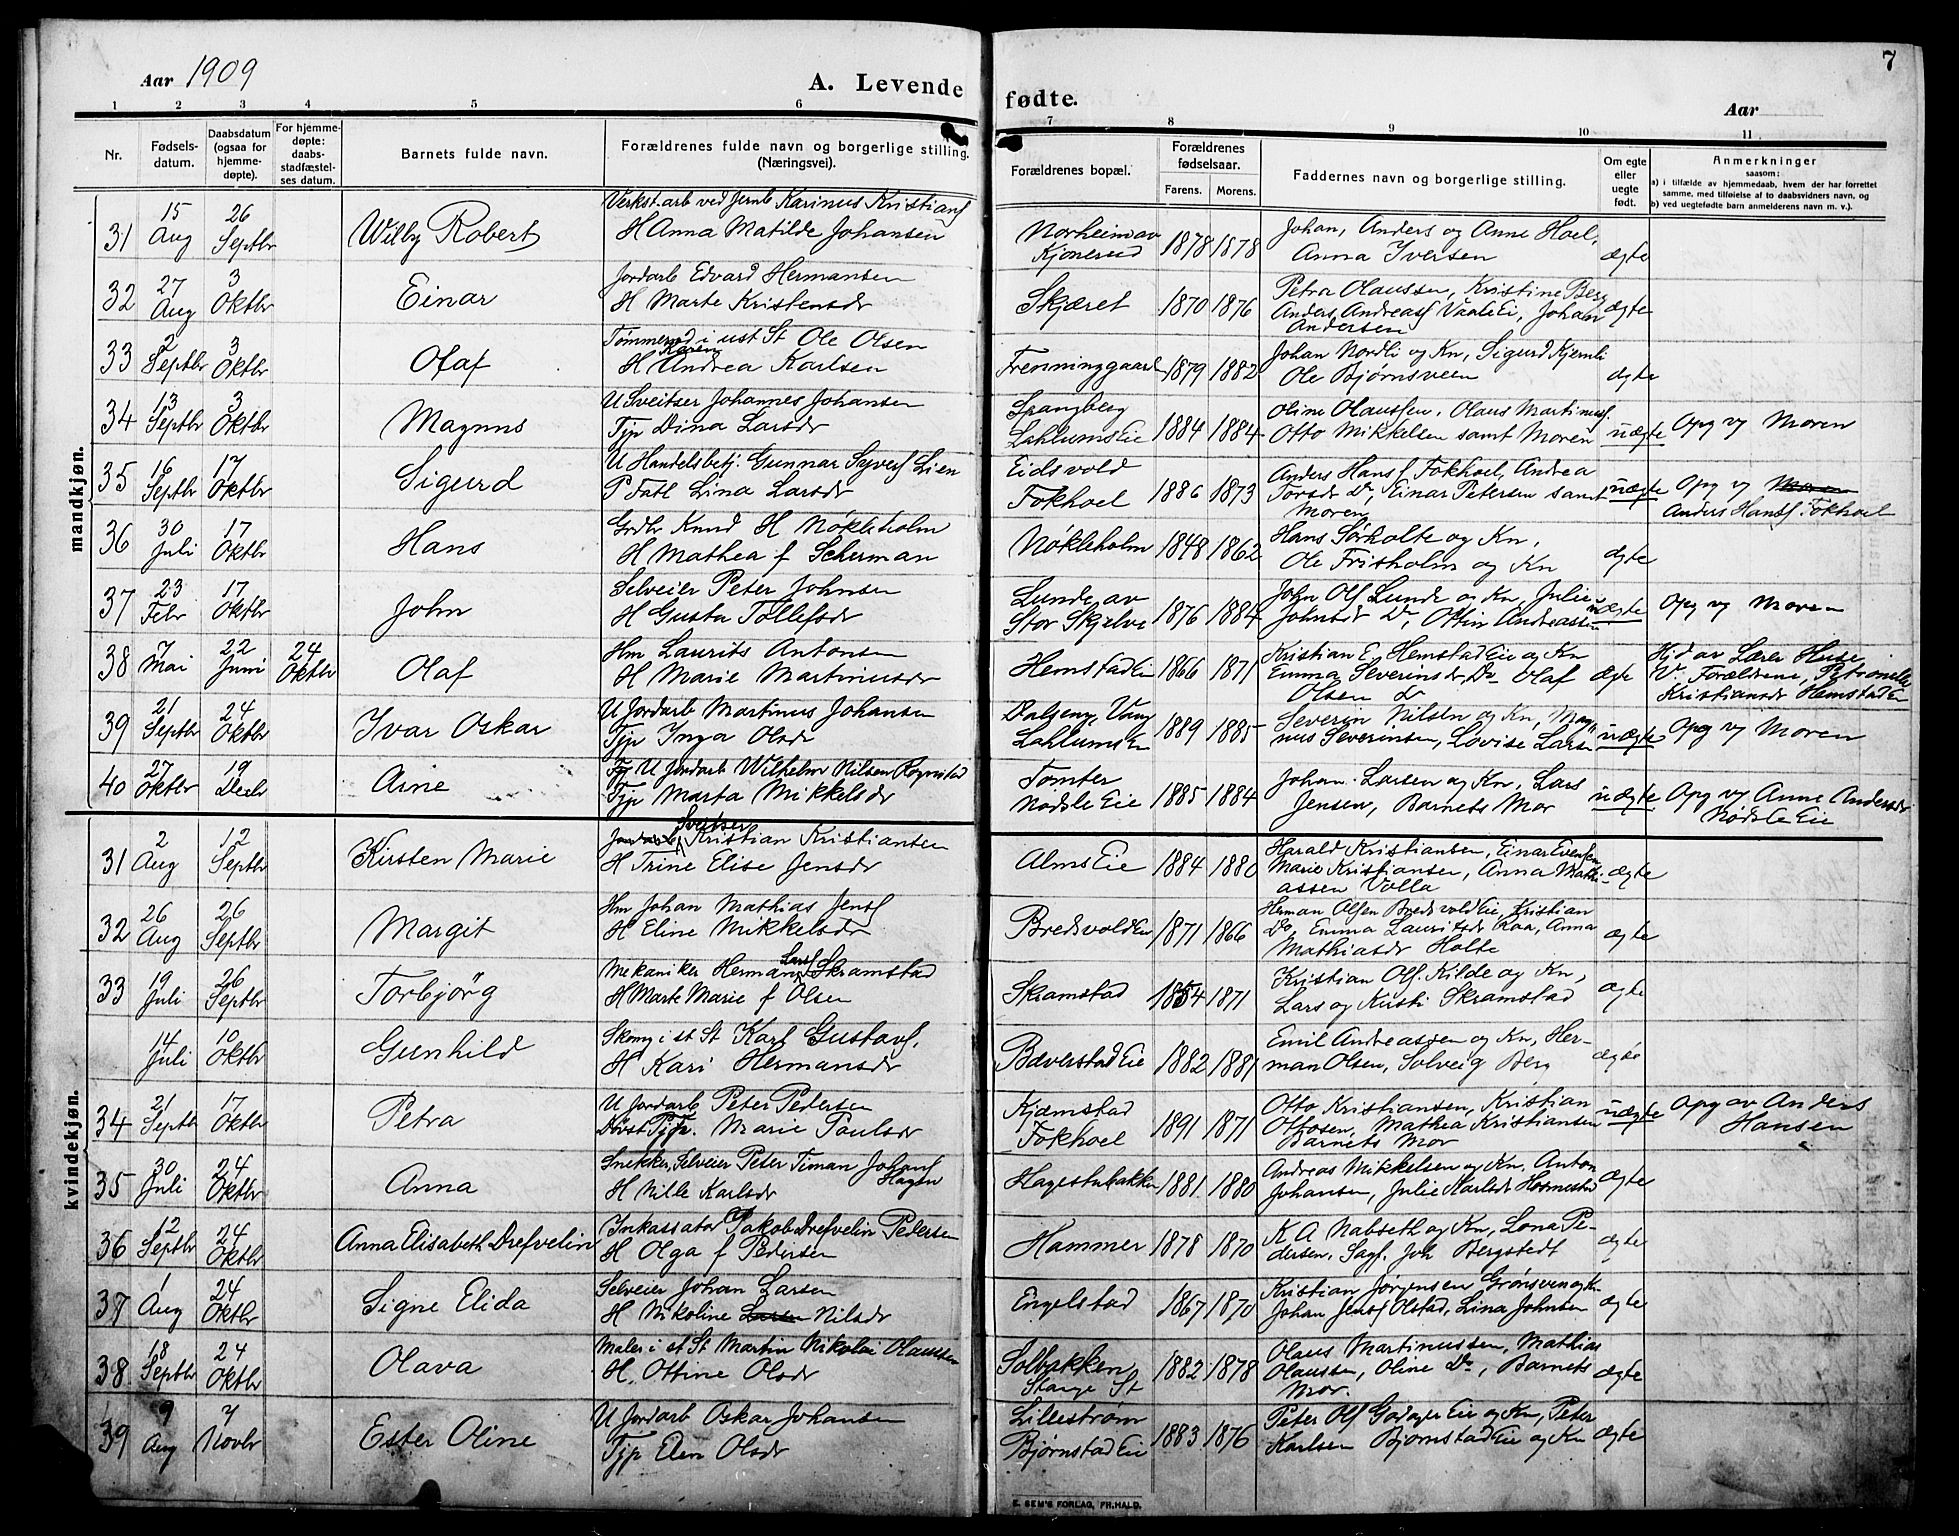 Aar 1909
A. Levende fødte.
Aar
7
1 2 3 4 5 6 7 8 9 10 11
Nr.
Fødsels-
datum.
Daabsdatum
(ogsaa for
hjemme-
døpte).
For hjemme-
døpte:
daabs-
stadfæstel-
ses datum.
Barnets fulde navn.
Forældrenes fulde navn og borgerlige stilling.
(Næringsvei).
Forældrenes bopæl.
Forældrenes
fødselsaar.
Farens. Morens.
Faddernes navn og borgerlige stilling.
Om egte
eller
uegte
født.
Anmerkninger
saasom:
a) i tilfælde av hjemmedaab, hvem der har forrettet
samme, med tilføielse af to daabsvidners navn, og
b) ved uegtefødte barn anmelderens navn m. v.).
mandkjøn.
31 15 Aug 26 Septbr Willy Robert
Verkst.arb ved Jernb Karinus Kristiansf
H Anna Matilde Johansen
Norheim av Kjonerud 1878 1878
Johan, Anders og Anne Hoel,
Anna Iversen
ægte
32 27 Aug 3 Oktbr Einar
Jordarb Edvard Hermansen
H Marte Kristensdr
Skjæret 1870 1876
Petra Olaussen, Kristine Berg
Anders Andreasf VaaleEie, Johan
Andersen
ægte
33 2 Septbr 3 Oktbr Olaf
Tømmermd i ust St Ole Olsen
H Karen Andrea Karlsen
Frenninggaard 1879 1882
Johan Nordli og Kn, Sigurd Kjernli
Ole Bjørnsveen
ægte
34 13 Septbr 3 Oktbr Magnus
U Sveitser Johannes Johansen
Tjp Dina Larsdr
Spangberg
LahlumsEie 1884 1884
Oline Olaussen, Olaus Martinusf.
Otto Mikkelsen samt Moren
uægte
Opg v Moren
35 16 Septbr 17 Oktbr Sigurd
U Handelsbetj. Gunnar Syversf Lien
P Fatl Lina Larsdr
Eidsvold
Fokhoel 1886 1873
Anders Hansf Fokhoel, Andrea
Torsdr Do, Einar Petersen samt
Moren
uægte
Opg v Moren
Anders Hansf Fokhoel
36 30 Juli 17 Oktbr Hans
Grdbr Knud H Nökleholm
H Mathea f Scherman
Nökleholm 1848 1862
Hans Sørholte og Kn,
Ole Frisholm og Kn
ægte
37 23 Febr 17 Oktbr John
Selveier Peter Johnsen
H Gusta Tollefsdr
Lunde av
Stor Skjelve 1876 1884
John Olf Lunde og Kn, Julie
Johnsdr Do, Ottin Andreassen
uægte
Opg v Moren
38 7 Mai 22 Juni 24 Oktbr Olaf
Hm Laurits Antonsen
H Marie Martinusdr
HemstadEie 1866 1871
Kristian E. HemstadEie og Kn
Emma Severinsdr Do Olaf
Olsen Do
ægte
Hjd av Lærer Huse
V. Forældrene, Petronelle
Kristiansdr HemstadEie
39 21 Septbr 24 Oktbr Ivar Oskar
U Jordarb Martinus Johansen
Tjp Inga Olsdr
Dalseng, Vang
LahlumsEie 1889 1885
Severin Nilsen og Kn, Mag-
nus Severinsen, Lovise Larsen
uægte
Opg v Moren
40 27 Oktbr 19 Decbr Arne
U Jordarb Wilhelm Nilsen Rognstad
Tjp Marta Mikkelsdr
Tomter
NødsleEie 1885 1884
Johan Larsen og Kn, Lars
Jensen, Barnets Mor
uægte
Opg v Anne Andersdr
NødsleEie
kvindekjøn.
31 2 Aug 12 Septbr Kirsten Marie
Jordarb Sveitser Kristian Kristiansen
H Trine Elise Jensdr
AlmsEie 1884 1880
Harald Kristiansen, Einar Evensen
Marie Kristiansen, Anna Mathi-
assen Volla
ægte
32 26 Aug 26 Septbr Margit
Hm Johan Mathias Jensf
H Eline Mikkelsdr
BredsvoldEie 1871 1866
Herman Olsen BredsvoldEie, Kristian
Do, Emma Lauritsdr Raa, Anna
Mathiasdr Holte
ægte
33 19 Juli 26 Septbr Torbjörg
Mekaniker Herman Larsf Skramstad
H Marte Marie f Olsen
Skramstad 1854 1871
Kristian Olf. Kilde og Kn,
Lars og Kristi Skramstad
ægte
14 Juli 10 Oktbr Gunhild
Skomg i st St Karl Gustavf.
H Kari Hermansdr
BæverstadEie 1882 1881
Emil Andreassen og Kn, Her-
man Olsen, Solveig Berg
ægte
34 21 Septbr 17 Oktbr Petra
U Jordarb Peter Pedersen
Døvst Tjp. Marie Paulsdr
Kjæmstad
Fokhoel 1891 1871
Otto Kristiansen, Kristian
Ottosen, Mathea Kristiansen
Barnets Mor
uægte
Opg av Anders
Hansen
35 30 Juli 24 Oktbr Anna
Snekker, Selveier Peter Timan Johansf
Hagen
H Nille Karlsdr
Hagestubakken 1881 1880
Andreas Mikkelsen og Kn, Anton
Johansen, Julie Karlsdr Hosmestad
ægte
36 12 Septbr 24 Oktbr Anna Elisabeth Drefvelin
Inkassator Jakob Drefvelin Pedersen
H Olga f Pedersen
Hammer 1878 1870
K A Nabseth og Kn, Lona Pe-
dersen, Sagf. Joh Bergstedt
ægte
37 1 Aug 24 Oktbr Signe Elida
Selveier Johan Larsen
H Nikoline Larsen Nilsdr
Engelstad 1867 1870
Kristian Jørgensen Grønsven og Kn
Johan Jensf Olstad, Lina Johnsen
ægte
38 18 Septbr 24 Oktbr Olava
Maler i st St Martin Nikolai Olaussen
H. Ottine Olsdr
Solbakken
Stange St 1882 1878
Olaus Martinussen, Mathias
Olaussen, Oline Do, Barnets
Mor.
ægte
39 9 Aug 7 Novbr Ester Oline
U Jordarb Oskar Johansen
Tjp Elen Olsdr
Lillestrøm
BjørnstadEie 1883 1876
Peter Olf GodagerEie og Kn, Peter
Karlsen BjørnstadEie og Kn
ægte
E. SEM'S FORLAG, FR.HALD.